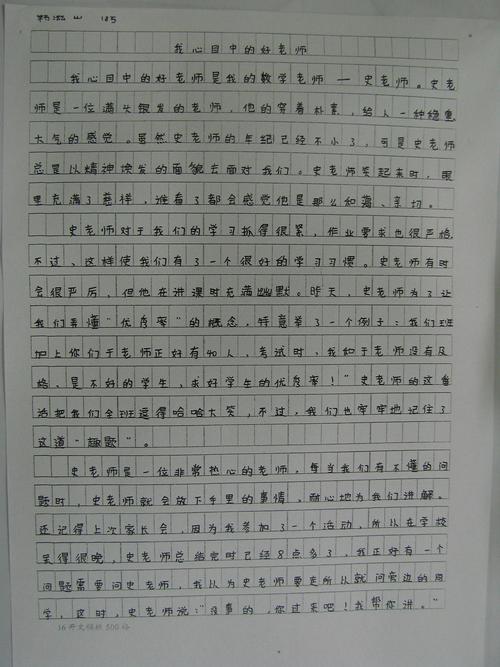 185
我心目中的好老师
我心目中的好老师是我的数学老师——史老师。史老
师是一位满头银发的老师，他的穿着朴素，给人一种稳重
大气的感觉。虽然史老师的年纪已经不小了，可是史老师
总是以精神焕发的面貌去面对我们。史老师笑起来时，眼
里充满了慈祥，谁看了都会感觉他是那么和蔼、亲切。
史老师对于我们的学习抓得很紧，作业要求也很严格，
不过、这样使我们有了一个很好的学习习惯。史老师有时
会很严厉，但他在讲课时充满幽默。昨天，史老师为了让
我们弄懂"优秀率"的概念，特意举了一个例子：我们班
加上你们于老师正好有40人，考试时、我如于老师没有及
格、是不好的学生，求好学生的优秀率！"史老师的这番
话把我们全班逗得哈哈大笑，不过，我们也牢牢地记住了
这道"趣题"。
史老师是一位非常热心的老师，每当我们有不懂的问
题时，史老师就会放下手里的事情、耐心地为我们讲解。
还记得上次家长会，因为我参加了一个活动，所以在学校
呆得很晚，史老师总结完时已经8点多了，我正好有一个
问题需要问史老师，我以为史老师要走所以就问旁边的同
学，这时，史老师说："没事的，你过来吧！我帮你讲。"
16开文稿纸500格